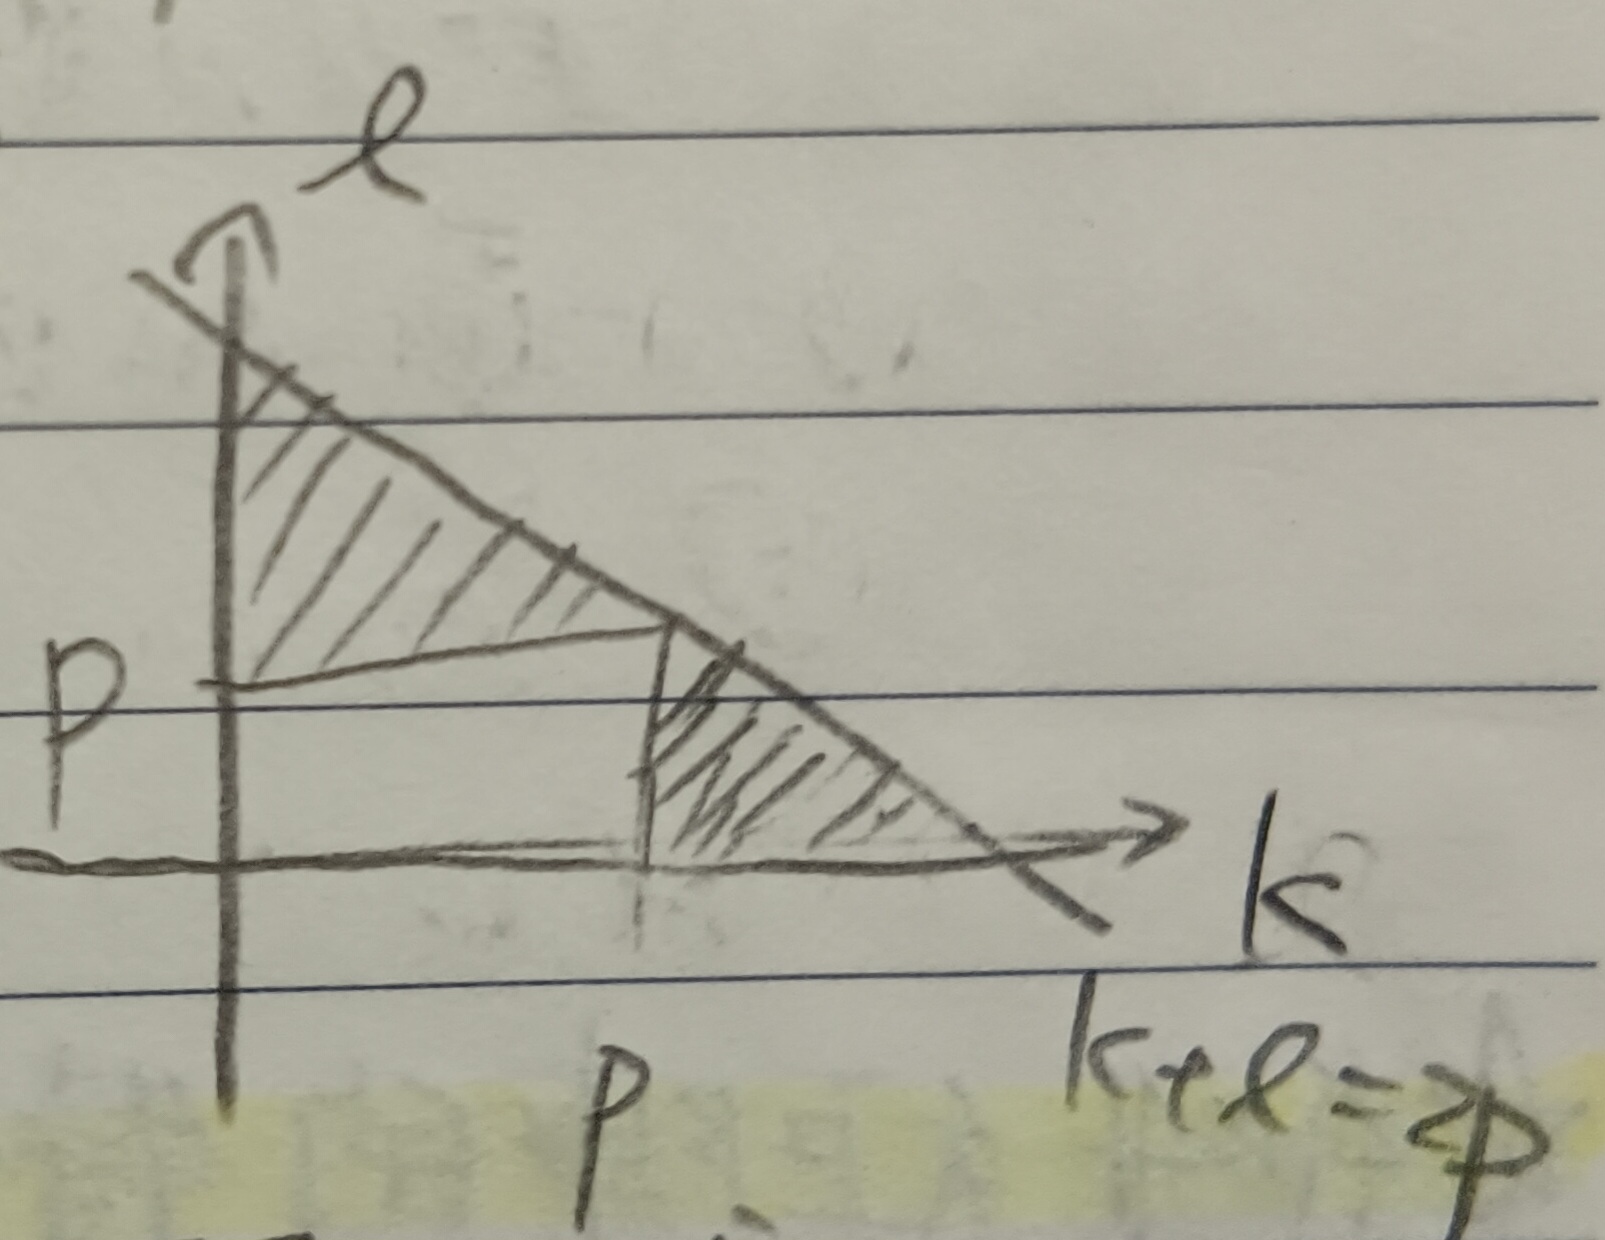 l
p
k
p
k+l=2p